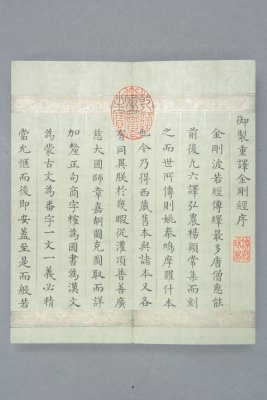 御製重譯金剛經序
金剛波若經傳繹最多唐僧慈能
前後九六譯弘農楊顒嘗集而刻
之而世所傳則姚秦鳩摩羅什本
也今乃得西藏舊本與諸本又各
有同異朕於幾暇從灌頂普善廣
慈大國師章嘉胡圖克圖取而詳
加釐正句商字榷為國書為漢文
為蒙古文為番字一文一義必精
當允愜而後即安蓋至是而般若